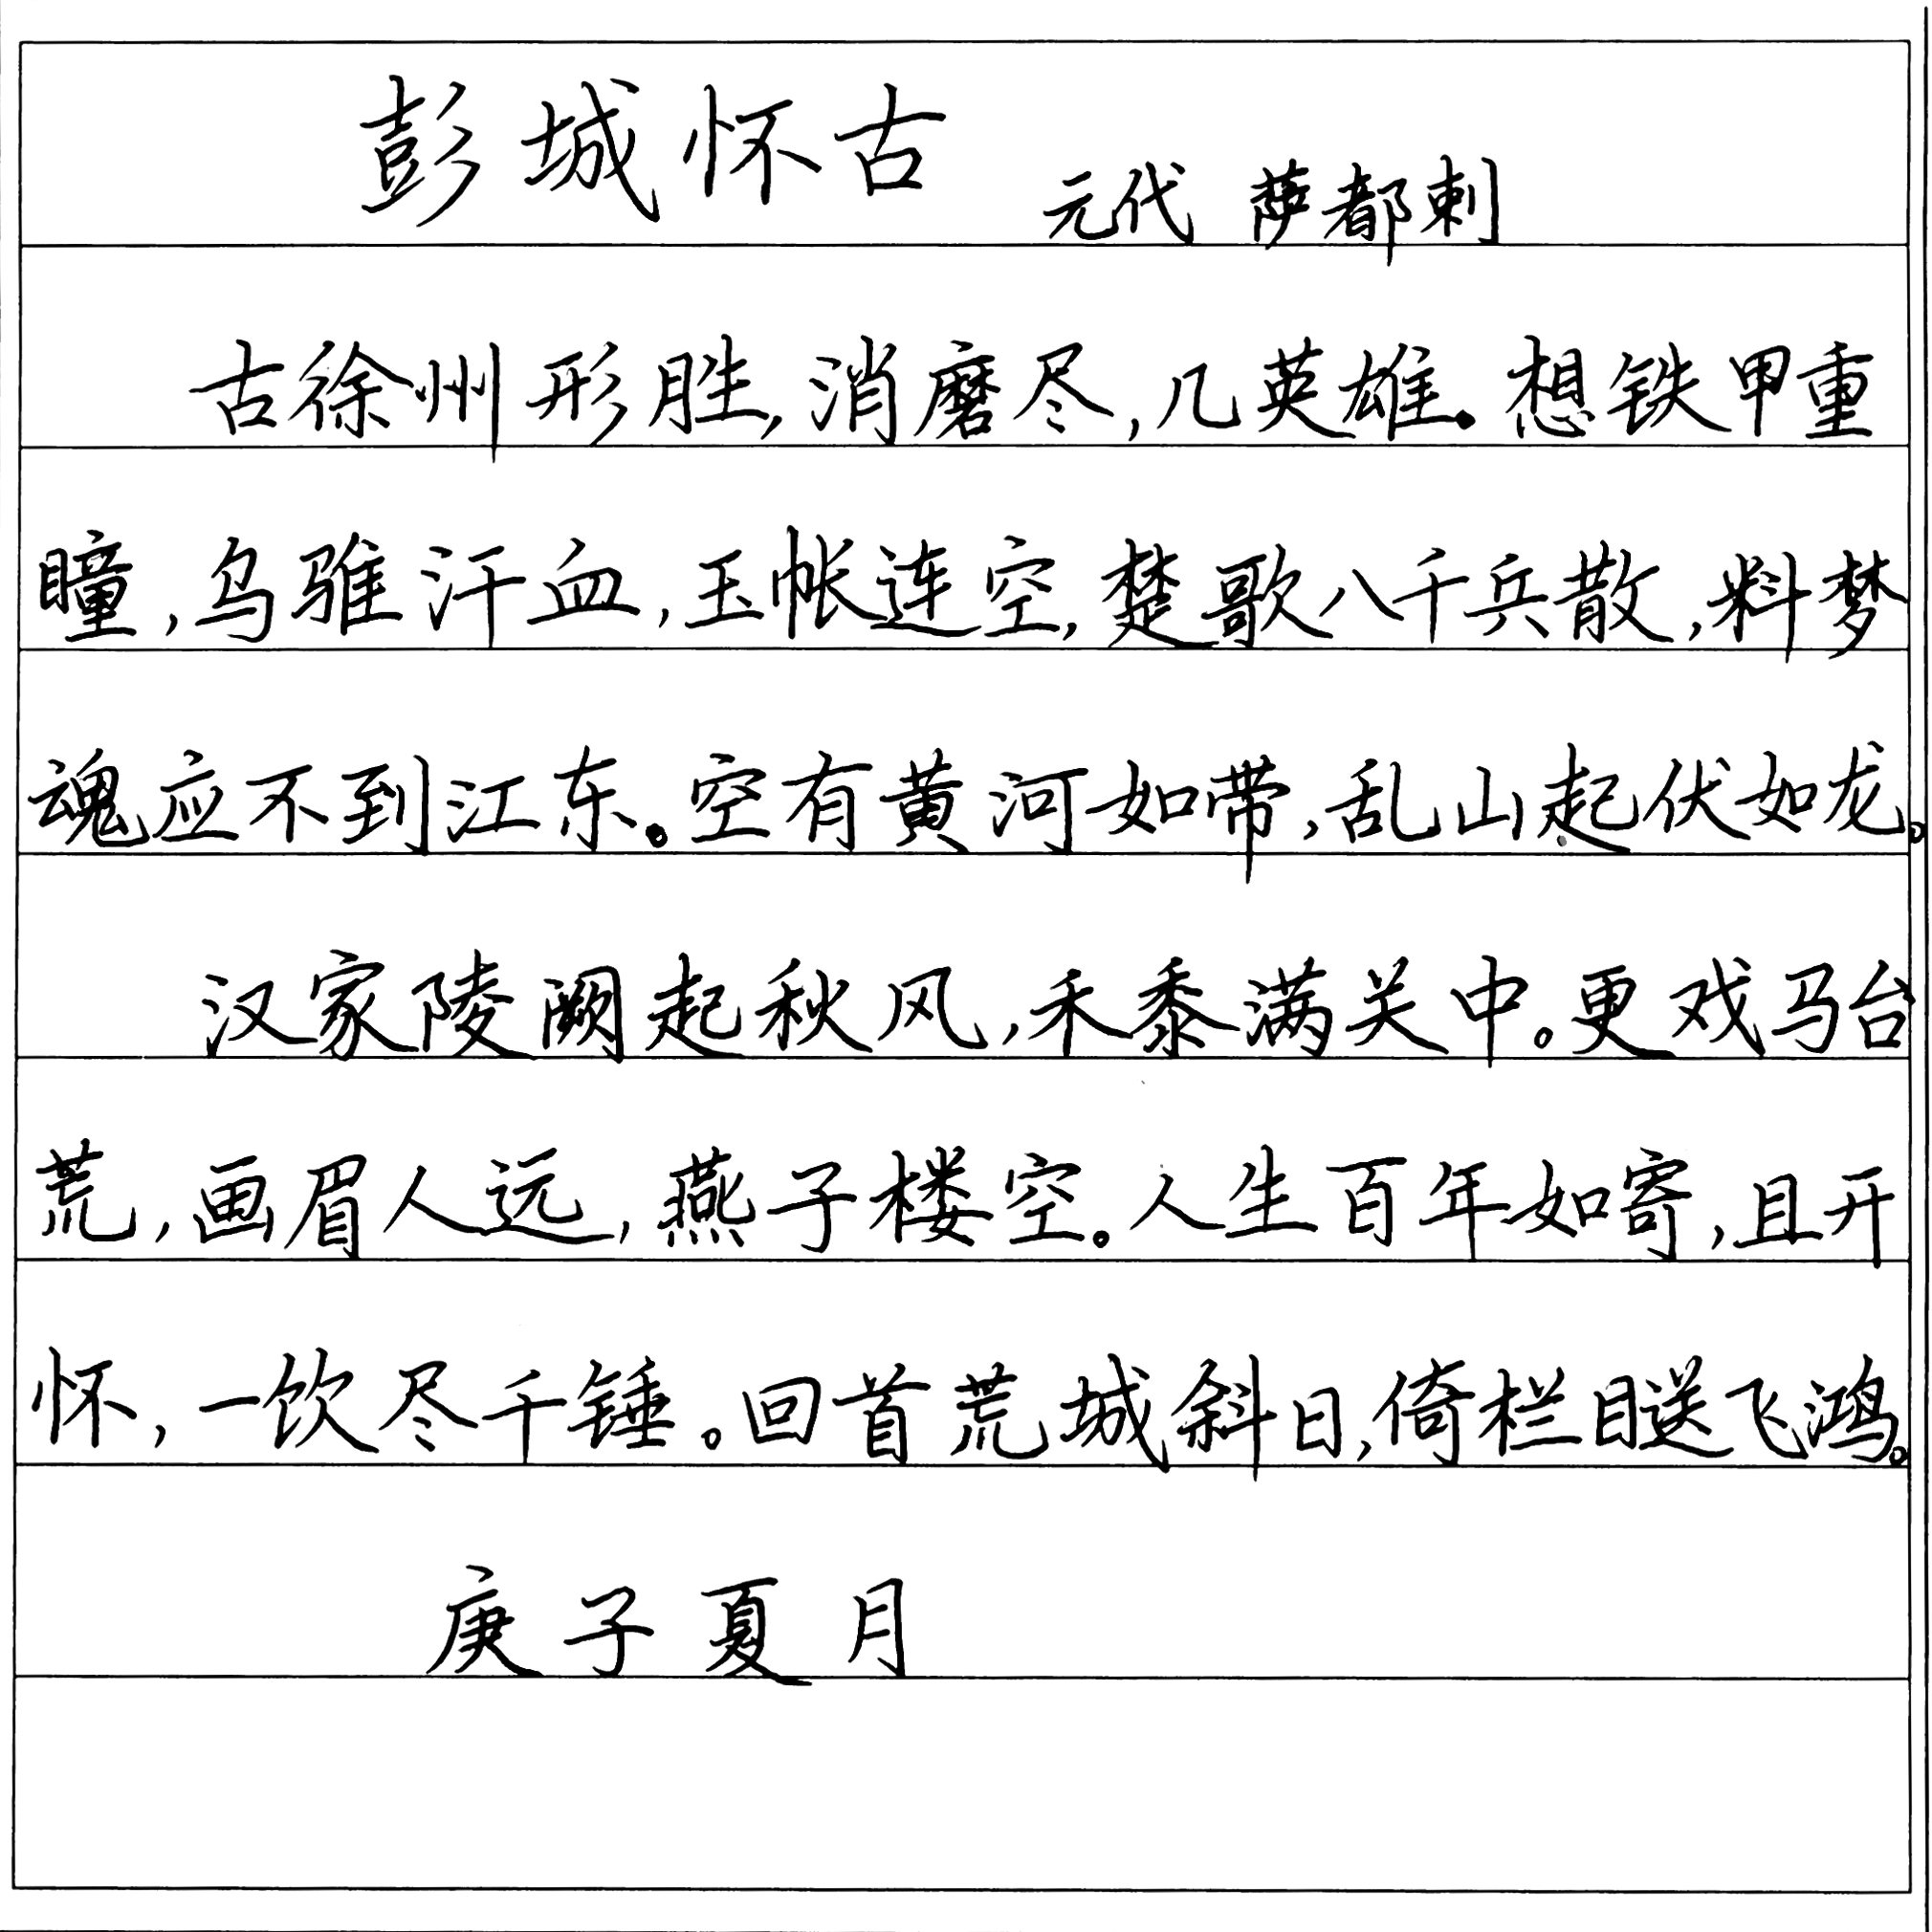 彭城怀古 元代 萨都剌
古徐州形胜,消磨尽,几英雄。想铁甲重
瞳,乌骓汗血,玉帐连空,楚歌八千兵散,料梦
魂应不到江东。空有黄河如带,乱山起伏如龙。
汉家陵阙起秋风,禾黍满关中。更戏马台
荒,画眉人远,燕子楼空。人生百年如寄,且开
怀,一饮尽千锺。回首荒城斜日,倚栏目送飞鸿。
庚子夏月